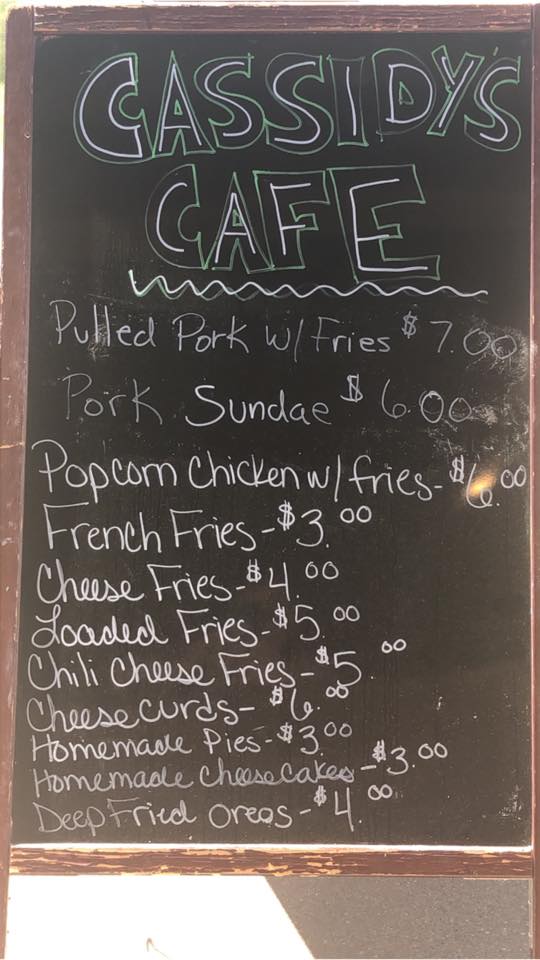 CASSIDY'S
CAFE
Pulled Pork w/ Fries $7.00
Pork Sundae $6.00
Popcorn Chicken w/ fries - $6.00
French Fries - $3.00
Cheese Fries - $4.00
Loaded Fries - $5.00
Chili Cheese Fries - $5.00
Cheese curds - $6.00
Homemade Pies - $3.00
Homemade Cheesecakes - $3.00
Deep Fried Oreos - $4.00